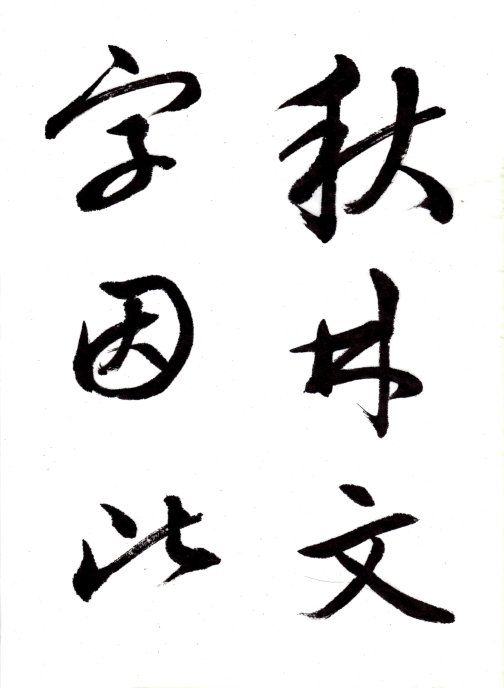 秋林文
字因此